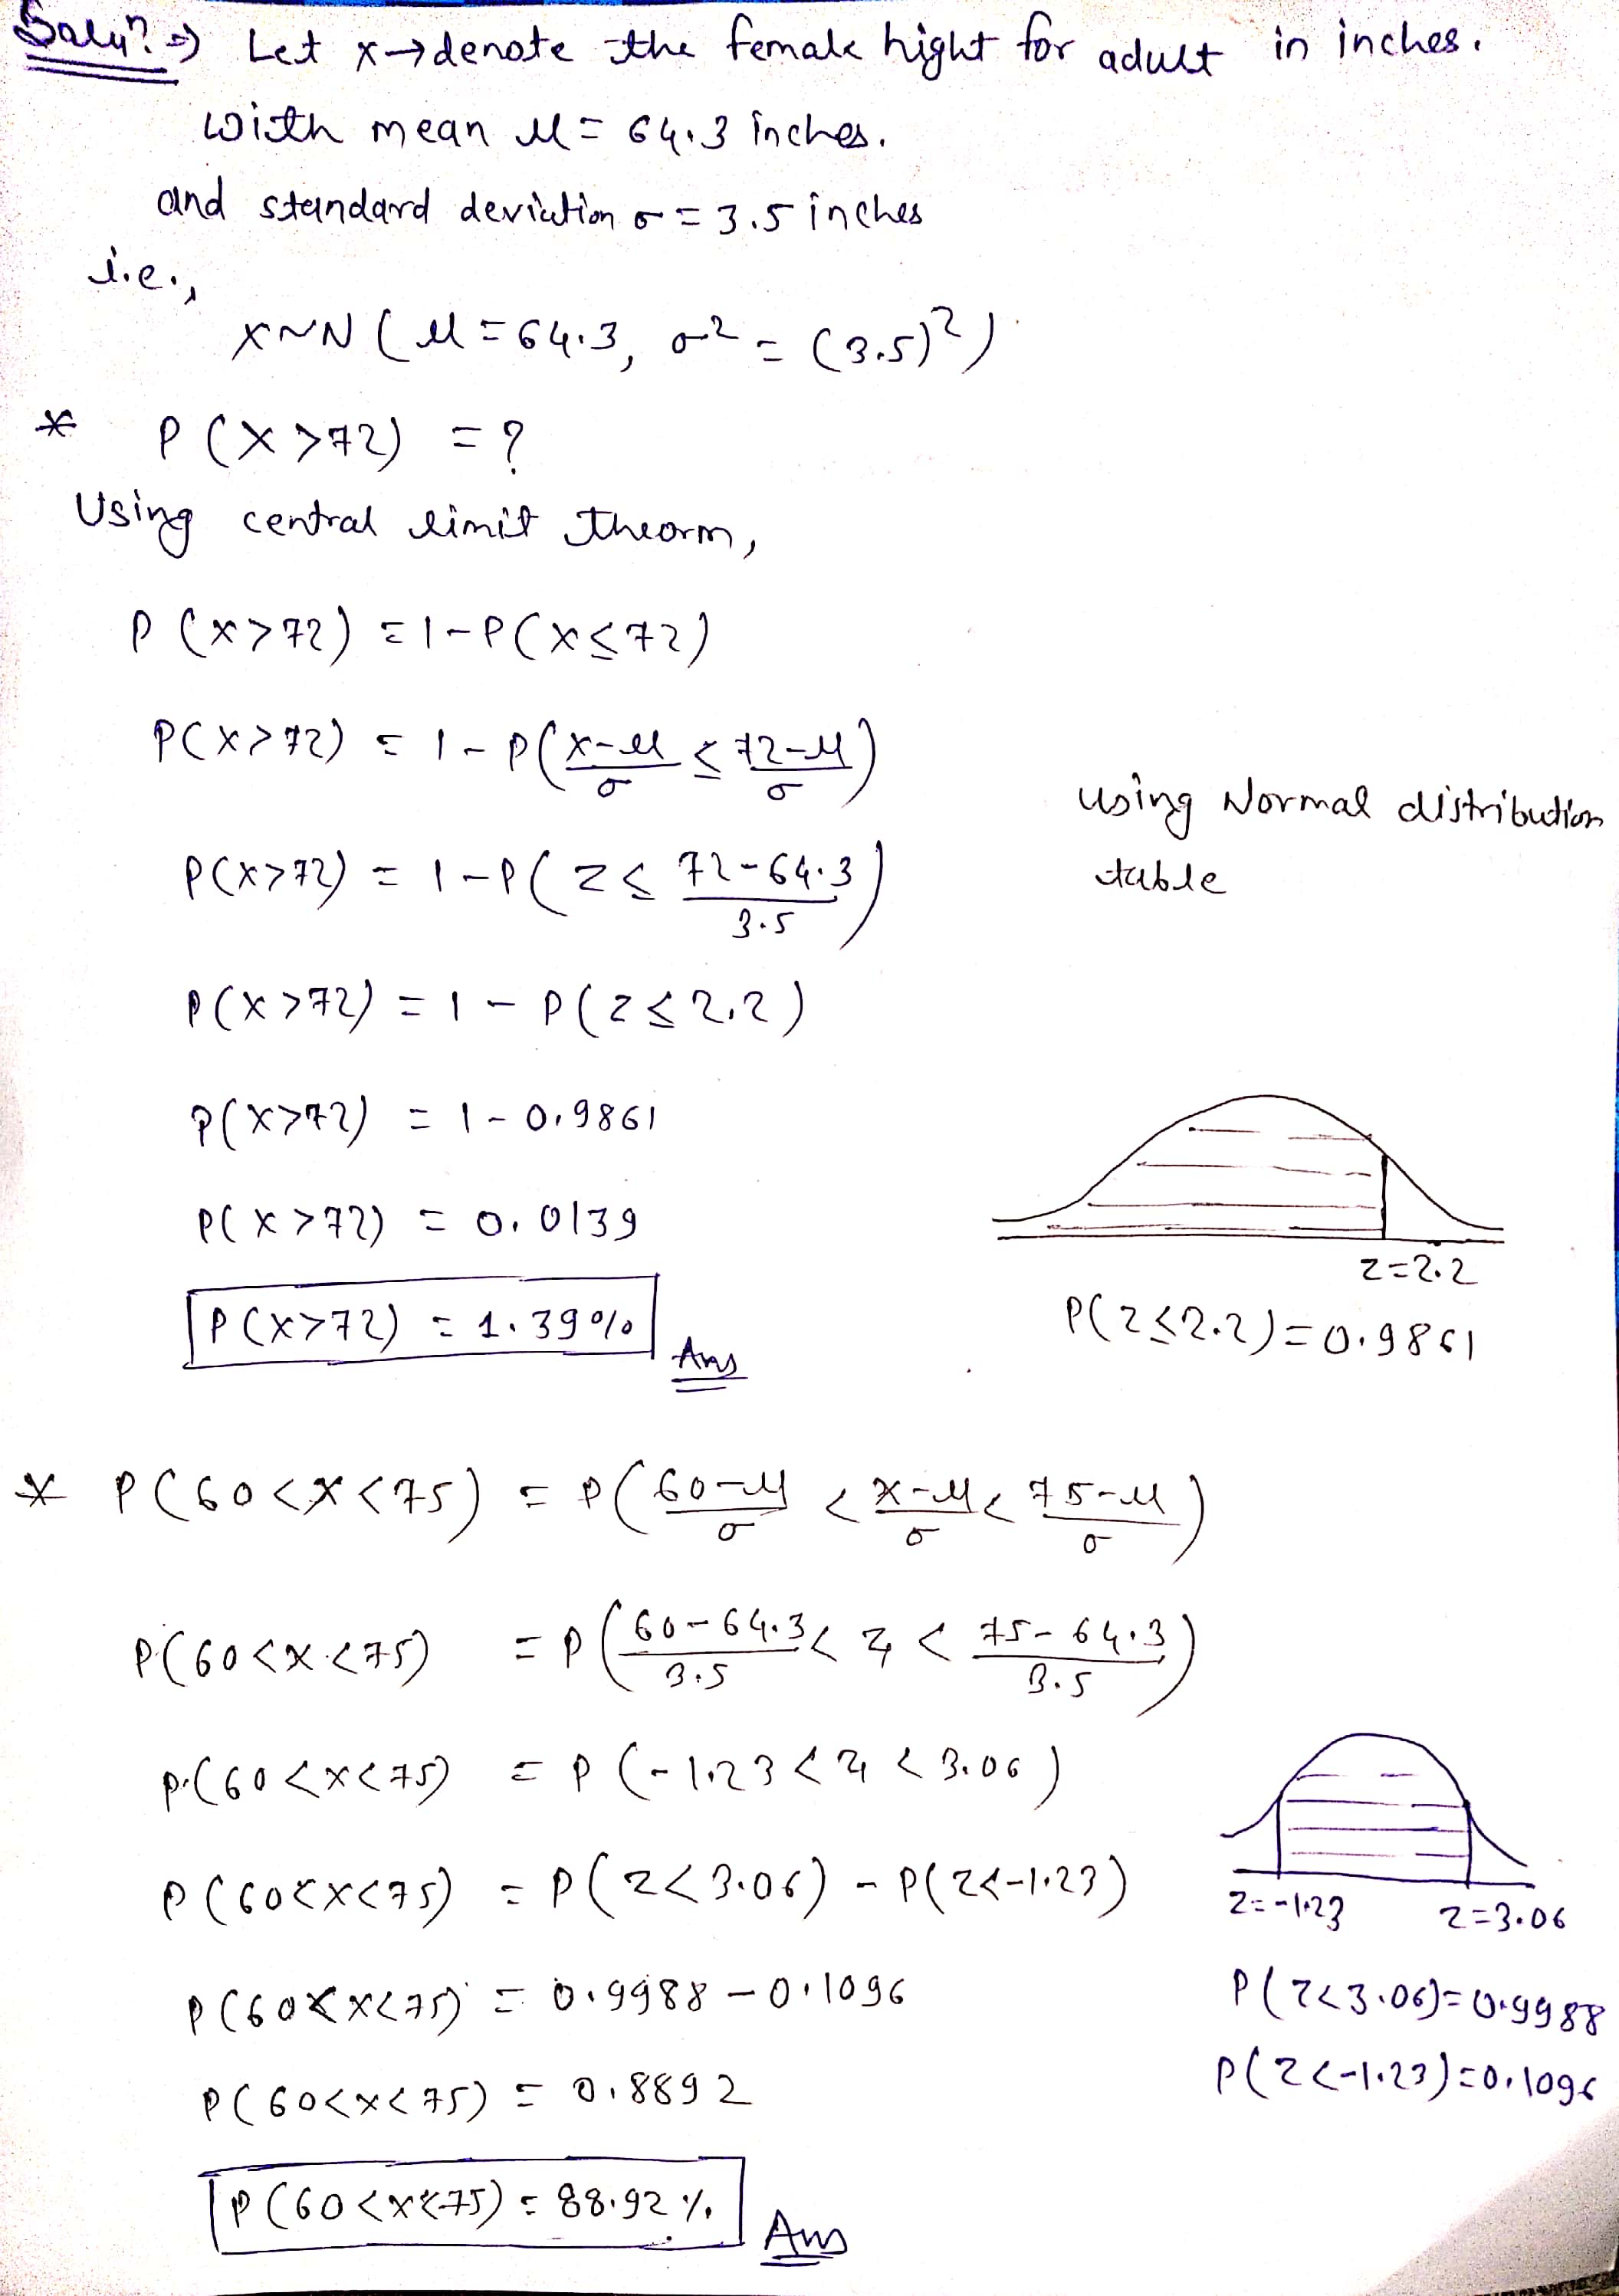 Solun? ⇒ Let x→denote the female hight for adult in inches.
with mean μ = 64.3 inches.
and standard deviation σ = 3.5 inches
i.e.,
X~N (μ = 64.3, σ² = (3.5)²)
* P (X > 72) = ?
Using central limit theorm,
P (x > 72) = 1 - P(X ≤ 72)
P(X > 72) = 1 - P((x-μ)/σ ≤ (72-μ)/σ)
using Normal distribution
table
P(X>72) = 1 - P(Z ≤ (72-64.3)/3.5)
P(X >72) = 1 - P(Z ≤ 2.2)
P(X>72) = 1 - 0.9861
P(X >72) = 0.0139
P(X>72) = 1.39% Ans
z=2.2
P(Z≤2.2)=0.9861
* P(60<X<75) = P((60-μ)/σ < (x-μ)/σ < (75-μ)/σ)
P(60<X<75) = P((60-64.3)/3.5 < Z < (75-64.3)/3.5)
P(60<X<75) = P (-1.23 < Z < 3.06)
P(60<X<75) = P(Z<3.06) - P(Z<-1.23)
z=-1.23 z=3.06
P(60<X<75) = 0.9988 - 0.1096
P(Z<3.06)=0.9988
P(60<X<75) = 0.8892
P(Z<-1.23)=0.1096
P(60<X<75) = 88.92% Ans